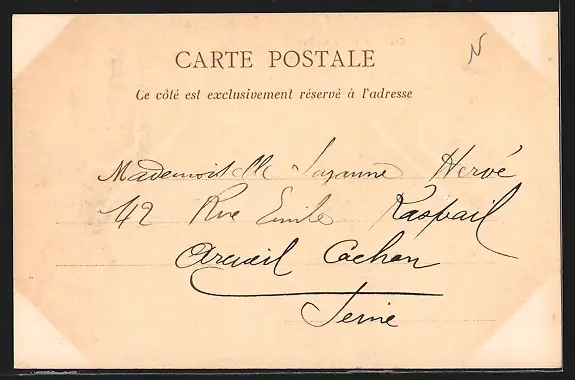 CARTE POSTALE
N
Ce côté est exclusivement réservé à l'adresse
Mademoiselle Suzanne Hervé
42 Rue Emile Raspail
Arcueil Cachan
Seine